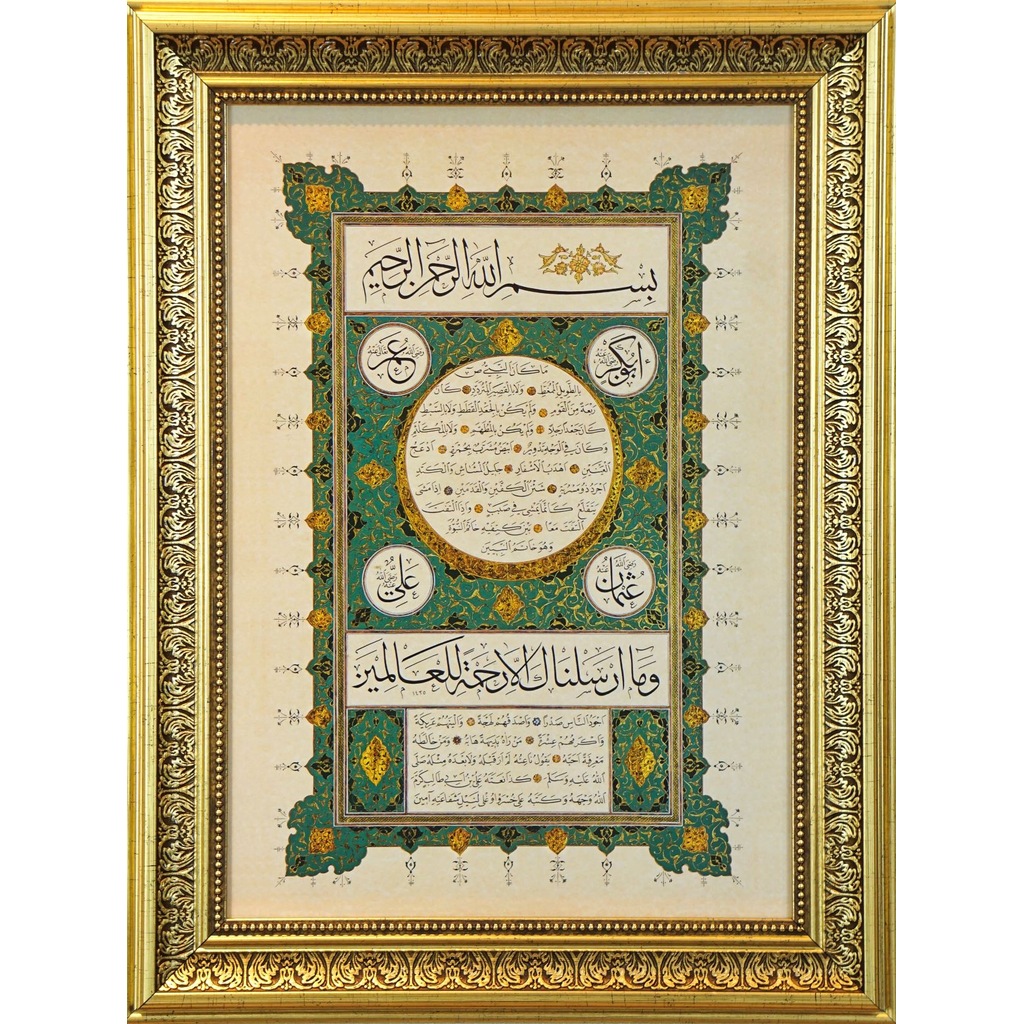 بِسْمِ اللهِ الرَّحْمٰنِ الرَّحِيمِ
ابُوبَكْرٍ رَضِيَ اللهُ عَنْهُ
عُمَر رَضِيَ اللهُ تَعَالَى عَنْهُ
مَا كَانَ النَّبِيُّ ص
بِالطَّوِيلِ الْمُمَّغِطِ وَلَا بِالْقَصِيرِ الْمُتَرَدِّدِ كَانَ
رَبْعَةً مِنَ الْقَوْمِ وَلَمْ يَكُنْ بِالْجَعْدِ الْقَطَطِ وَلَا بِالسَّبْطِ
كَانَ جَعْدًا رَجِلًا وَلَمْ يَكُنْ بِالْمُطَهَّمِ وَلَا بِالْمُكَلْثَمِ
وَكَانَ فِي الْوَجْهِ تَدْوِيرٌ ابْيَضُ مُشْرَبٌ بِحُمْرَةٍ ادْعَجُ
الْعَيْنَيْنِ اهْدَبُ الْاشْفَارِ جَلِيلُ الْمُشَاشِ وَالْكَتَدِ
اجْرَدُ ذُو مَسْرُبَةٍ شَثْنُ الْكَفَّيْنِ وَالْقَدَمَيْنِ اِذَا مَشَى
يَتَقَلَّعُ كَانَّمَا يَمْشِي فِي صَبَبٍ وَاِذَا الْتَفَتَ
الْتَفَتَ مَعًا بَيْنَ كَتِفَيْهِ خَاتَمُ النُّبُوَّةِ
وَهُوَ خَاتَمُ النَّبِيِّينَ
عُثْمَانُ رَضِيَ اللهُ عَنْهُ
عَلِيٌّ رَضِيَ اللهُ عَنْهُ
وَمَا ارْسَلْنَاكَ اِلَّا رَحْمَةً لِلْعَالَمِينَ
١٤٢٥
اجْوَدُ النَّاسِ صَدْرًا وَاصْدَقُهُمْ لَهْجَةً وَالْيَنُهُمْ عَرِيكَةً
وَاكْرَمُهُمْ عِشْرَةً مَنْ رَآهُ بَدِيهَةً هَابَهُ وَمَنْ خَالَطَهُ
مَعْرِفَةً احَبَّهُ يَقُولُ نَاعِتُهُ لَمْ ارَ قَبْلَهُ وَلَا بَعْدَهُ مِثْلَهُ صَلَّى
اللهُ عَلَيْهِ وَسَلَّمَ كَذَا نَعَتَهُ عَلِيُّ بْنُ ابِي طَالِبٍ كَرَّمَ
اللهُ وَجْهَهُ وَكَتَبَهُ عَلِي خُسْرَوْاوُغْلِى لِنَيْلِ شَفَاعَتِهِ آمِينَ